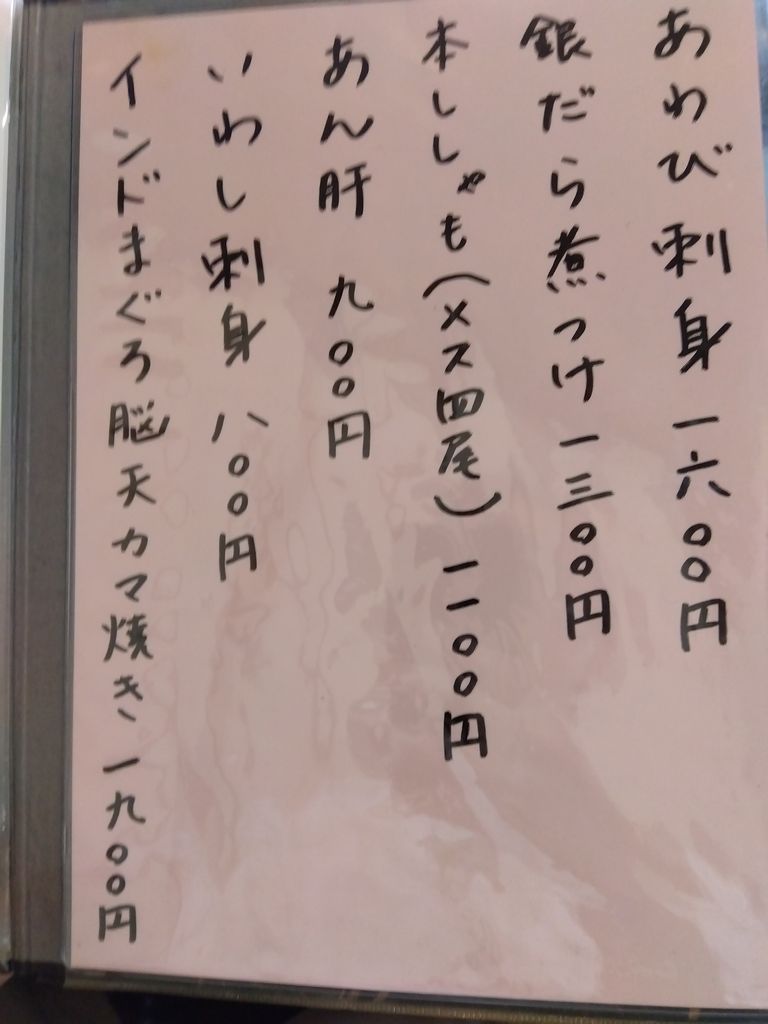 あわび刺身 一六〇〇円
銀だら煮つけ 一三〇〇円
本ししゃも(メス四尾) 一一〇〇円
あん肝 九〇〇円
いわし刺身 八〇〇円
インドまぐろ脳天カマ焼き 一九〇〇円